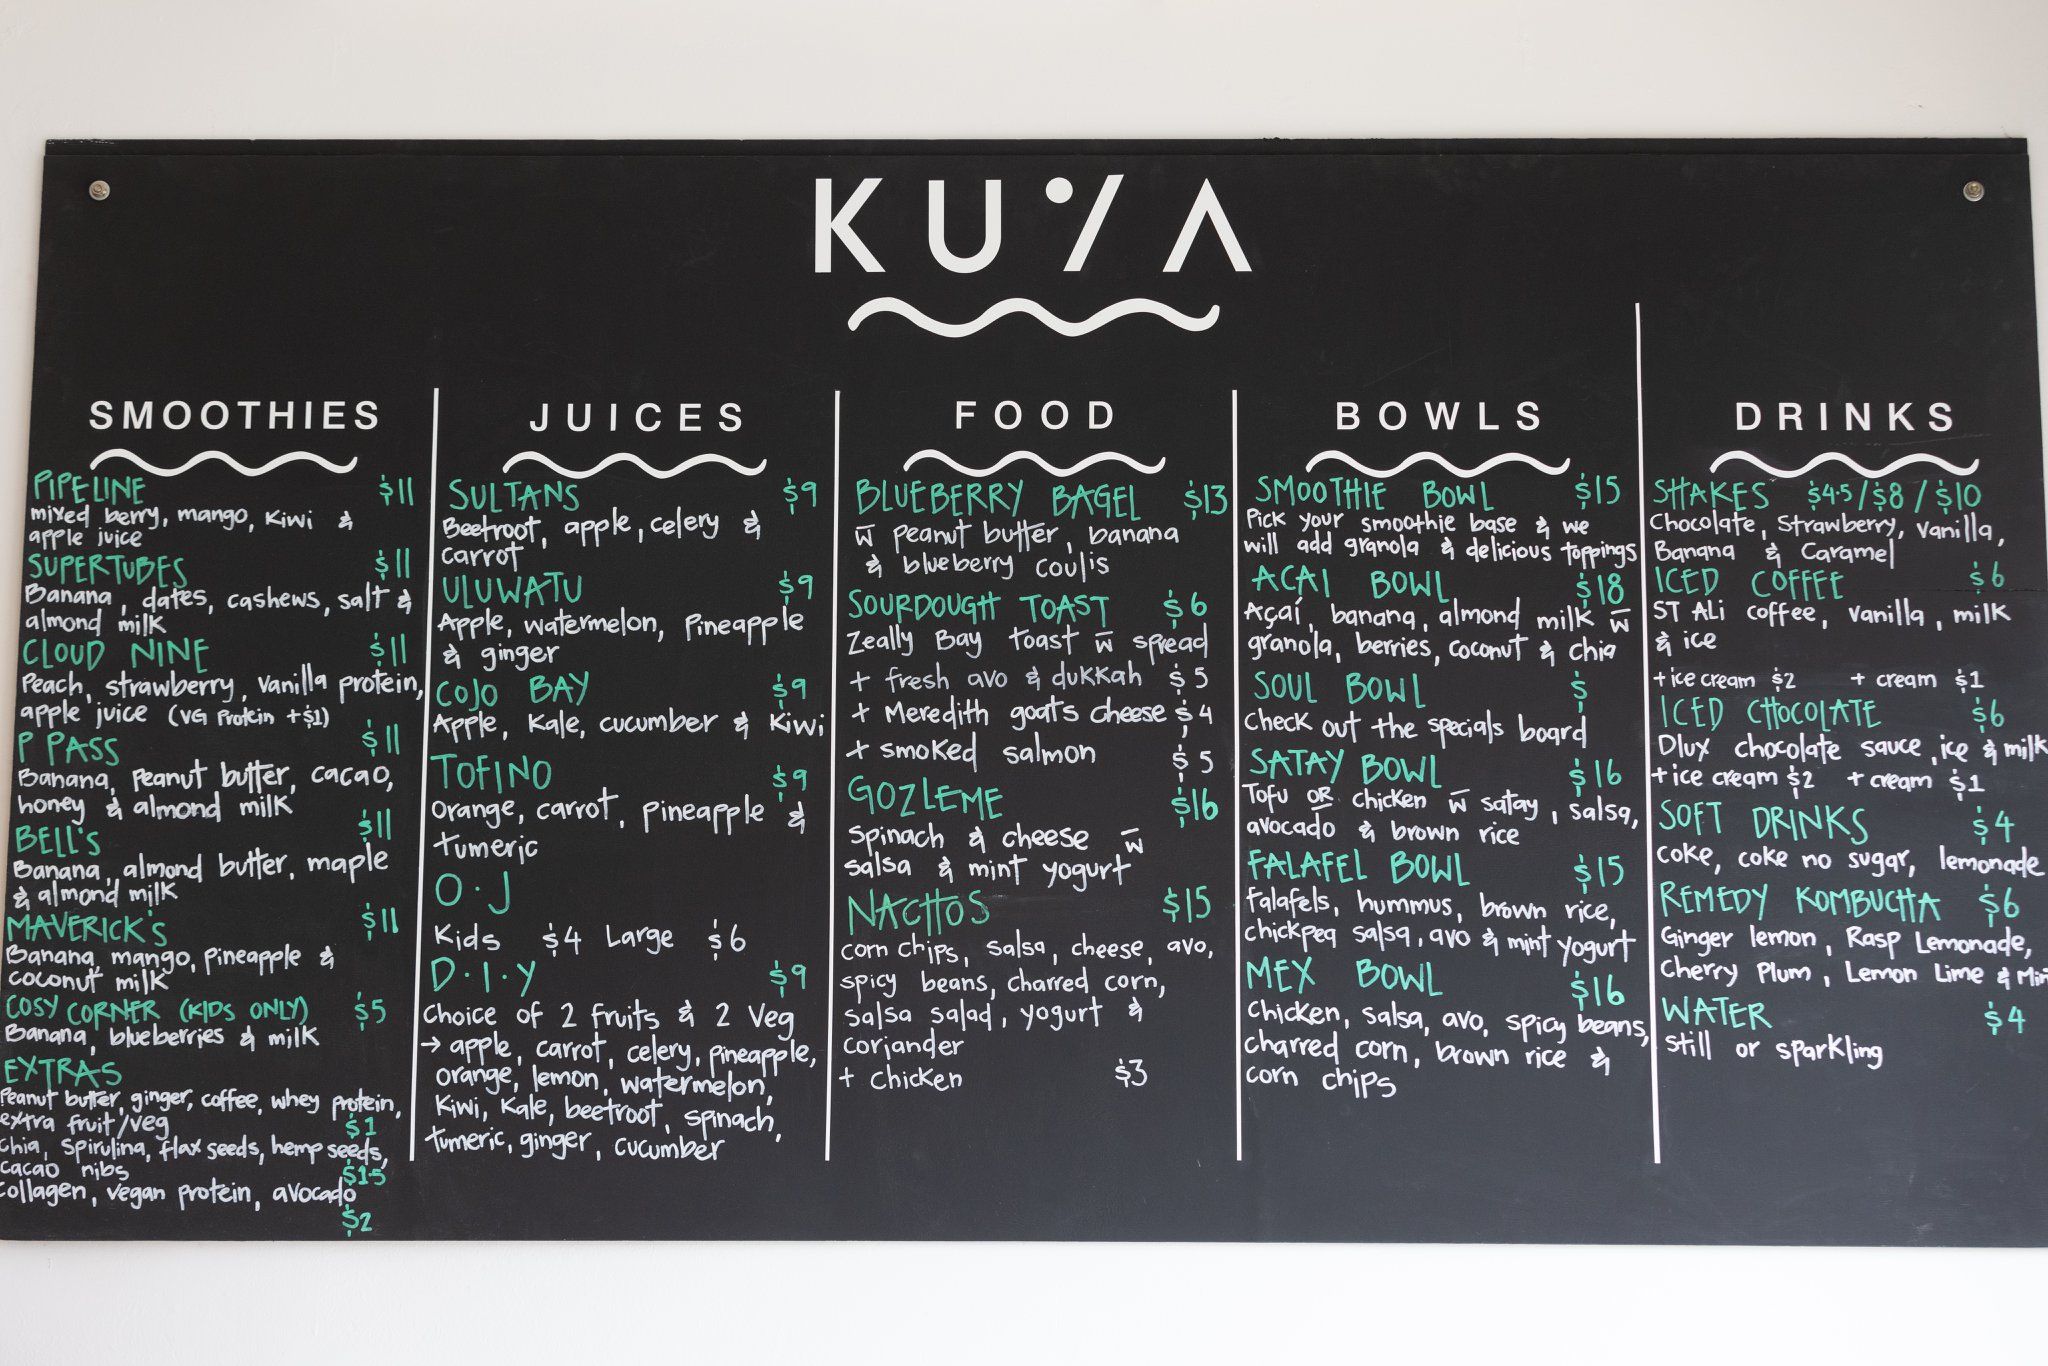 KUYA
SMOOTHIES
PIPELINE $11
mixed berry, mango, kiwi &
apple juice
SUPERTUBES $11
Banana, dates, cashews, salt &
almond milk
CLOUD NINE $11
Peach, strawberry, vanilla protein,
apple juice (VG Protein +$1)
P PASS $11
Banana, peanut butter, cacao,
honey & almond milk
BELL'S $11
Banana, almond butter, maple
& almond milk
MAVERICK'S $11
Banana, mango, pineapple &
coconut milk
COSY CORNER (KIDS ONLY) $5
Banana, blueberries & milk
EXTRAS
Peanut butter, ginger, coffee, whey protein,
extra fruit/veg $1
chia, spirulina, flax seeds, hemp seeds,
cacao nibs $1.5
collagen, vegan protein, avocado
$2
JUICES
SULTANS $9
Beetroot, apple, celery &
carrot
ULUWATU $9
Apple, watermelon, pineapple
& ginger
COJO BAY $9
Apple, kale, cucumber & kiwi
TOFINO $9
Orange, carrot, pineapple &
tumeric
O.J
Kids $4 Large $6
D.I.Y $9
Choice of 2 fruits & 2 veg
→ apple, carrot, celery, pineapple,
orange, lemon, watermelon,
kiwi, kale, beetroot, spinach,
tumeric, ginger, cucumber
FOOD
BLUEBERRY BAGEL $13
w peanut butter, banana
& blueberry coulis
SOURDOUGH TOAST $6
Zeally Bay toast w spread
+ fresh avo & dukkah $5
+ Meredith goats cheese $4
+ smoked salmon $5
GOZLEME $16
spinach & cheese w
salsa & mint yogurt
NACHOS $15
corn chips, salsa, cheese, avo,
spicy beans, charred corn,
salsa salad, yogurt &
coriander
+ chicken $3
BOWLS
SMOOTHIE BOWL $15
Pick your smoothie base & we
will add granola & delicious toppings
ACAI BOWL $18
Açaí, banana, almond milk w
granola, berries, coconut & chia
SOUL BOWL $
check out the specials board
SATAY BOWL $16
Tofu OR chicken w satay, salsa,
avocado & brown rice
FALAFEL BOWL $15
falafels, hummus, brown rice,
chickpea salsa, avo & mint yogurt
MEX BOWL $16
Chicken, salsa, avo, spicy beans,
charred corn, brown rice &
corn chips
DRINKS
SHAKES $4.5/$8/$10
Chocolate, strawberry, vanilla,
Banana & Caramel
ICED COFFEE $6
ST ALi coffee, vanilla, milk
& ice
+ ice cream $2 + cream $1
ICED CHOCOLATE $6
Dlux chocolate sauce, ice & milk
+ ice cream $2 + cream $1
SOFT DRINKS $4
coke, coke no sugar, lemonade
REMEDY KOMBUCHA $6
Ginger lemon, Rasp Lemonade,
Cherry Plum, Lemon Lime & Min
WATER $4
still or sparkling